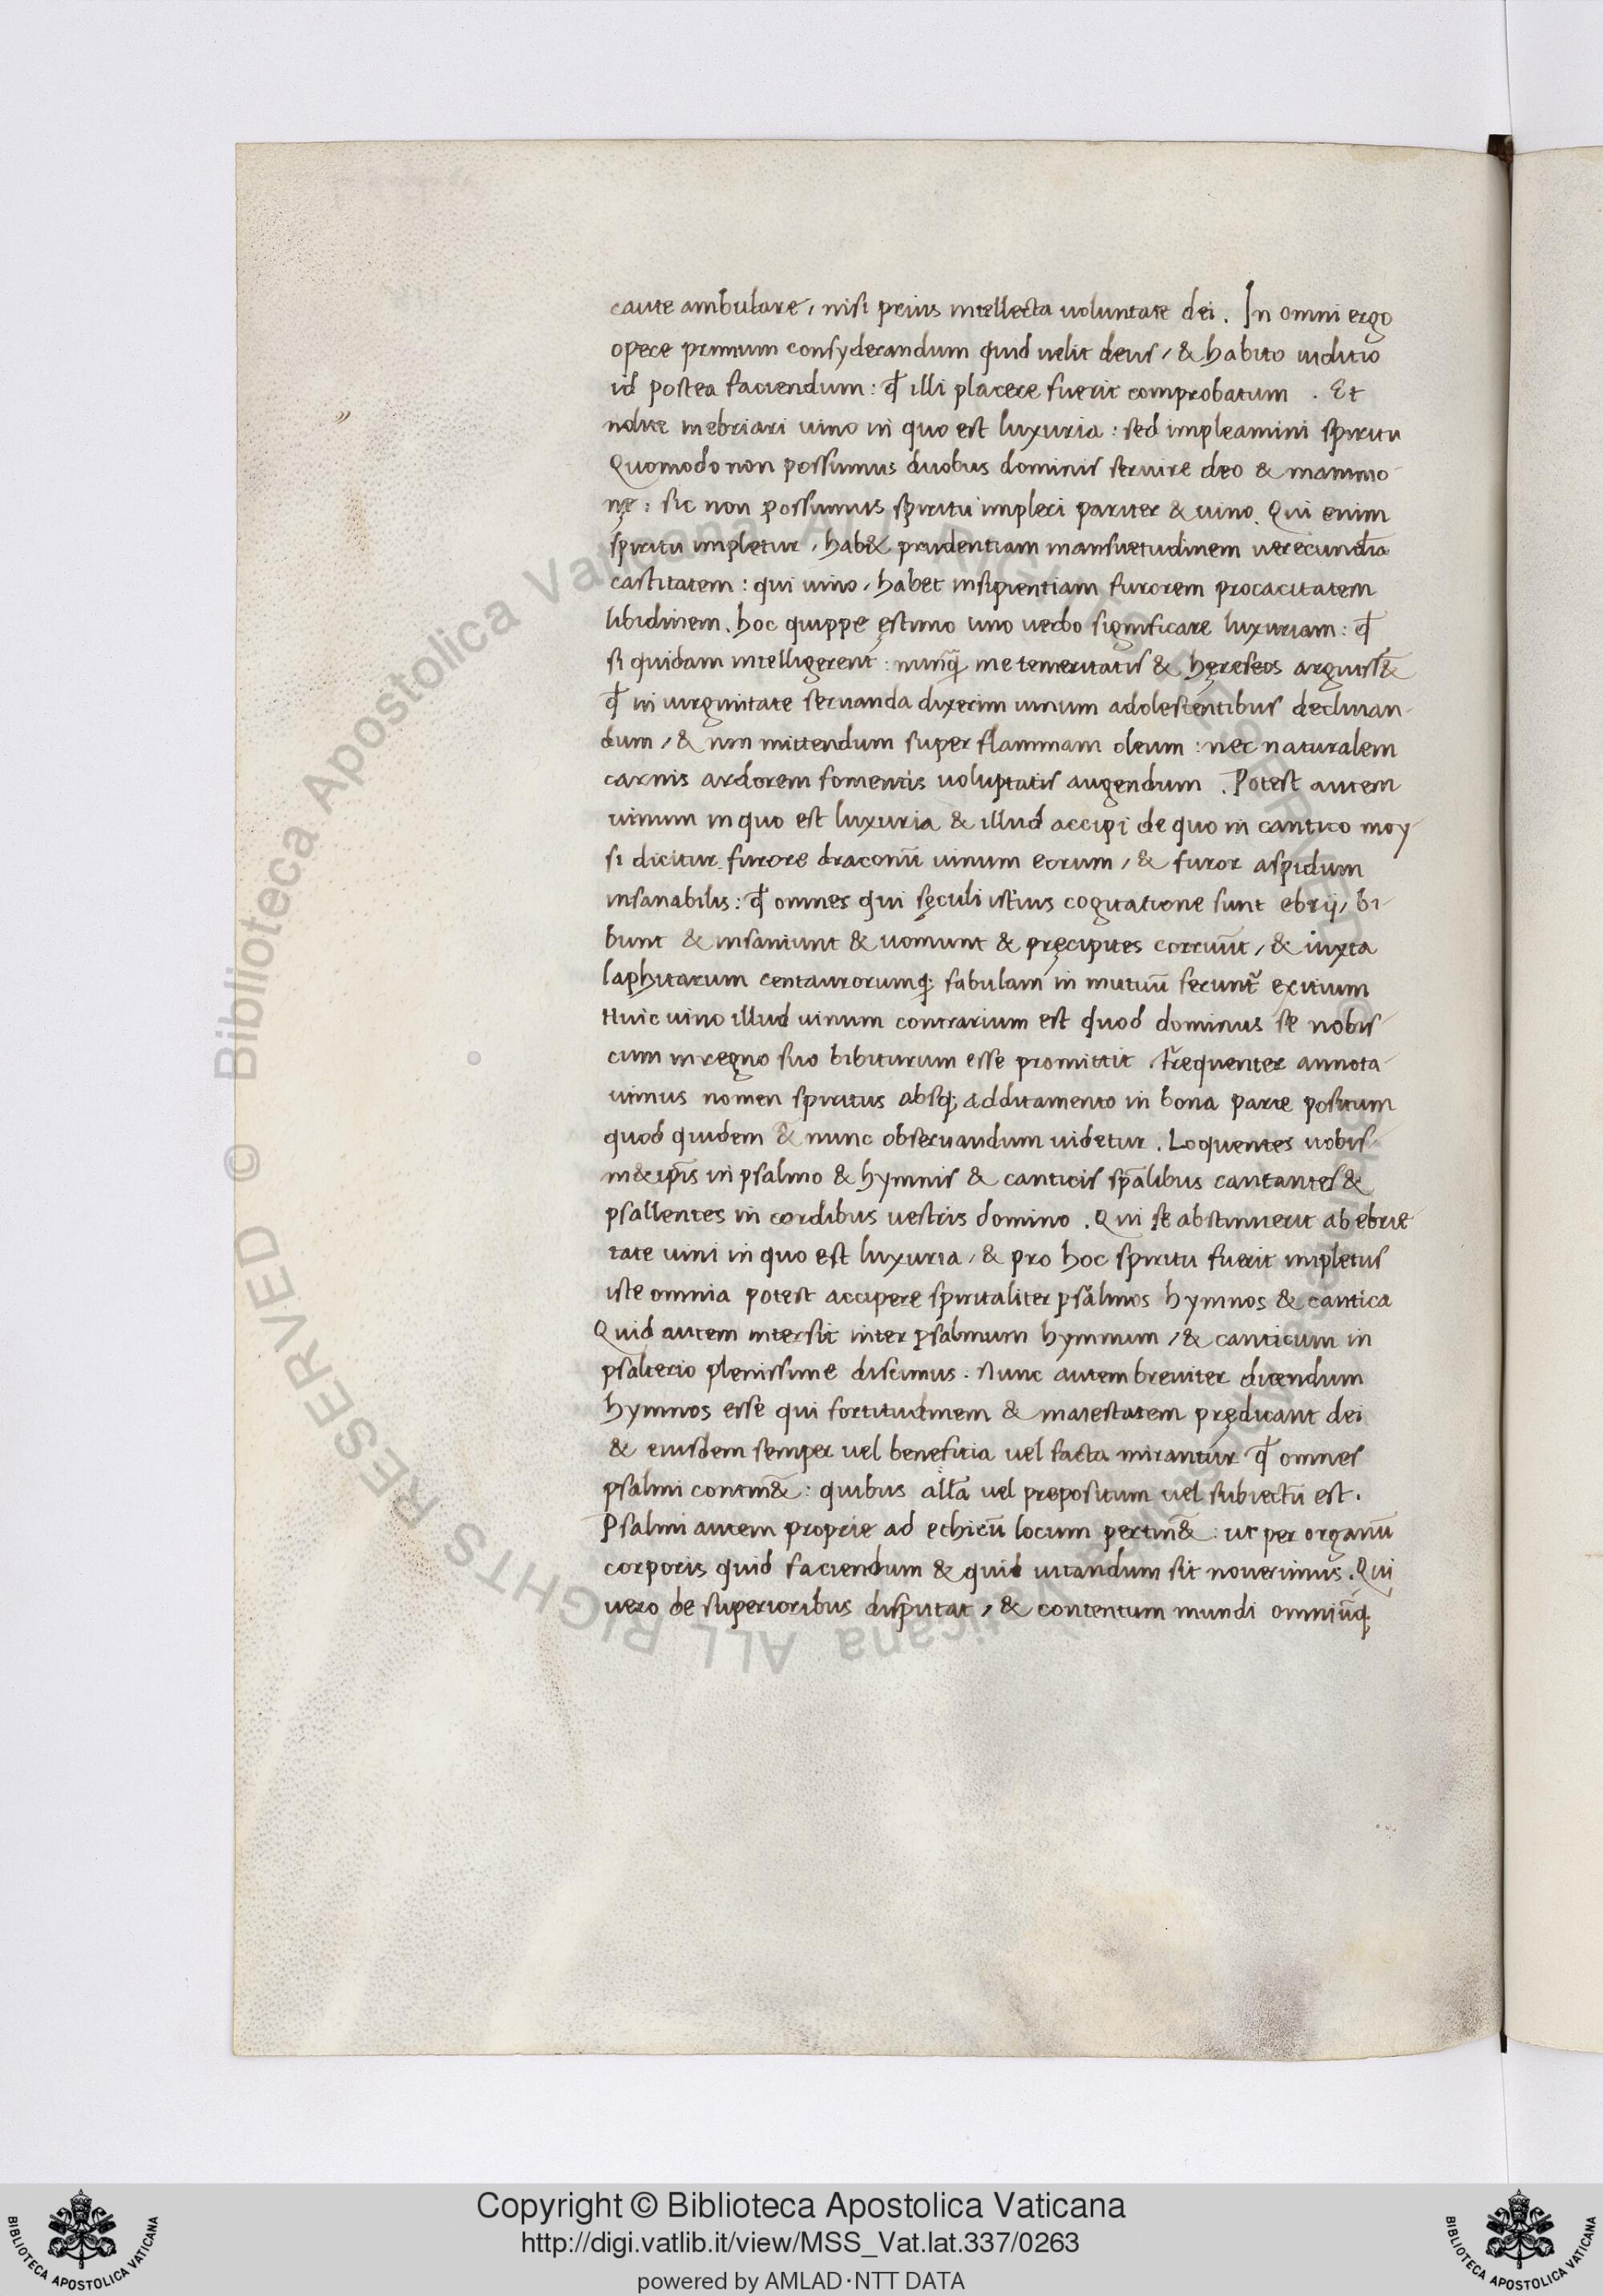 caute ambulare, nisi prius intellecta uoluntate dei. In omni ergo
opere primum consyderandum quid uelit deus, & habito iuditio
id postea faciendum: qd̄ illi placere fuerit comprobatum. Et
nolite inebriari uino in quo est luxuria: sed impleamini spiritu
Quomodo non possumus duobus dominis seruire deo & mammo
nę: sic non possumus spiritu impleri pariter & uino. Qui enim
spiritu impletur, hab& prudentiam mansuetudinem uerecundiā
castitatem: qui uino, habet insipientiam furorem procacitatem
libidinem. hoc quippe ęstimo uno uerbo significare luxuriam: qd̄
si quidam intelligerent: nunq̄ me temeritatis & hęreseos arguiss&
qd̄ in uirginitate seruanda dixerim uinum adolescentibus declinan
dum, & non mittendum super flammam oleum: nec naturalem
carnis ardorem fomentis uoluptatis augendum. Potest autem
uinum in quo est luxuria & illud accipi de quo in cantico moy
si dicitur. furore draconū uinum eorum, & furor aspidum
insanabilis: qd̄ omnes qui sęculi istius cogitatione sunt ebrij, bi
bunt & insaniunt & uomunt & pręcipites corruūt, & iuxta
laphitarum centaurorumq; fabulam in mutuū ferunt̄ exitium
Huic uino illud uinum contrarium est quod dominus se nobis
cum in regno suo bibiturum esse promittit. Frequenter annota
uimus nomen spiritus absq; additamento in bona parte positum
quod quidem & nunc obseruandum uidetur. Loquentes uobis
m&ip̄is in psalmo & hymnis & canticis sp̄alibus cantantes &
psallentes in cordibus uestris domino. Qui se abstinuerit ab ebrie
tate uini in quo est luxuria, & pro hoc spiritu fuerit impletus
iste omnia potest accipere spiritaliter psalmos hymnos & cantica
Quid autem intersit inter psalmum hymnum, & canticum in
psalterio plenissime discimus. Nunc autem breuiter dicendum
hymnos esse qui fortitudinem & maiestatem prędicant dei
& eiusdem semper uel benefitia uel facta mirantur qd̄ omnes
psalmi contin&: quibus all̄a uel prepositum uel subiectū est.
Psalmi autem proprie ad ethicū locum pertin&: ut per organū
corporis quid faciendum & quid uitandum sit nouerimus. Qui
uero de superioribus disputat, & contentum mundi omniūq;
Copyright © Biblioteca Apostolica Vaticana
http://digi.vatlib.it/view/MSS_Vat.lat.337/0263
powered by AMLAD·NTT DATA
BIBLIOTECA APOSTOLICA VATICANA
BIBLIOTECA APOSTOLICA VATICANA